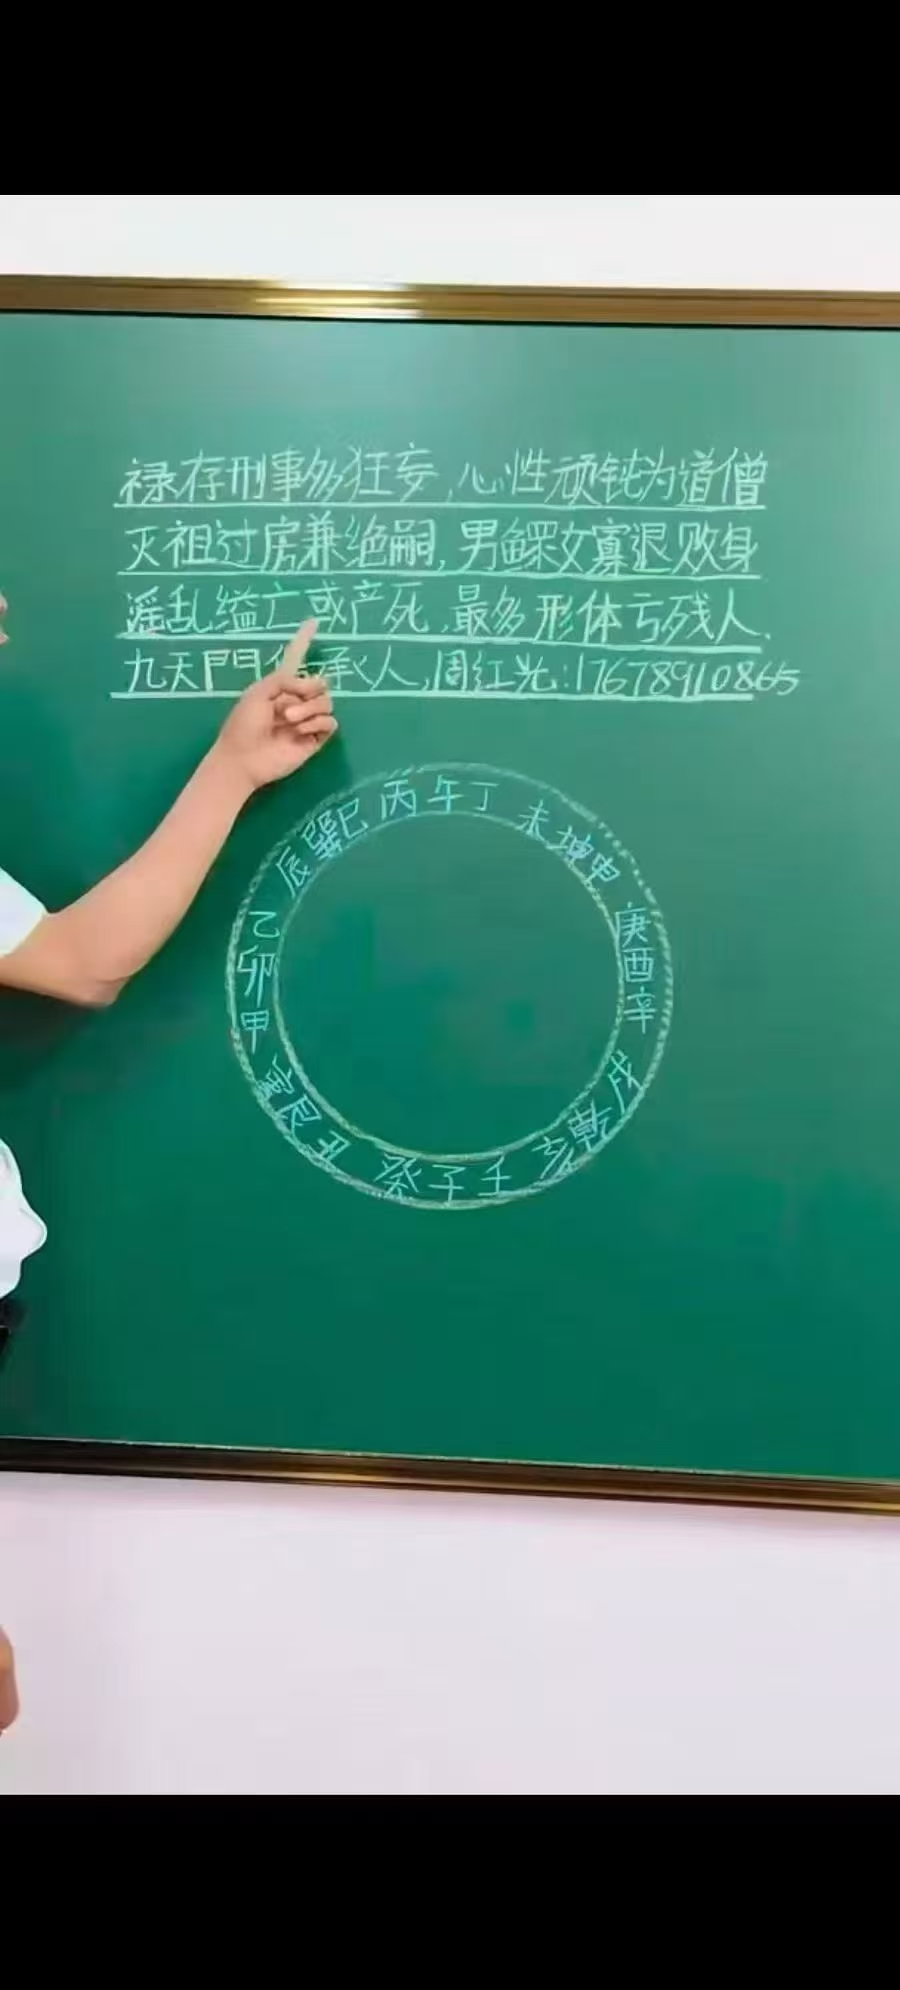 禄存刑事多狂妄,心性顽钝为道僧
灭祖过房兼绝嗣,男鳏女寡退败身
淫乱缢亡或产死,最多形体亏残人.
九天門 承人,周红光:17678910865
辰巽巳丙午丁未坤申
庚酉辛
戌乾亥壬子癸丑艮寅
甲卯乙